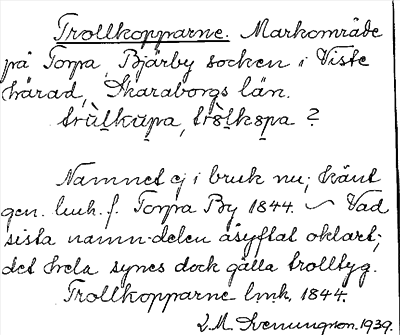 Trollkopparne. Markområde
på Torpa, Bjärby socken i Viste
härad, Skaraborgs län.
trùlkupa, tròlkopa ?
Namnet ej i bruk nu; känt
gen. lmh. f. Torpa By 1844. ~ Vad
sista namn-delen åsyftat oklart;
det hela synes dock gälla trolltyg.
Trollkopparne lmh. 1844.
L.M. Svenungson. 1939.